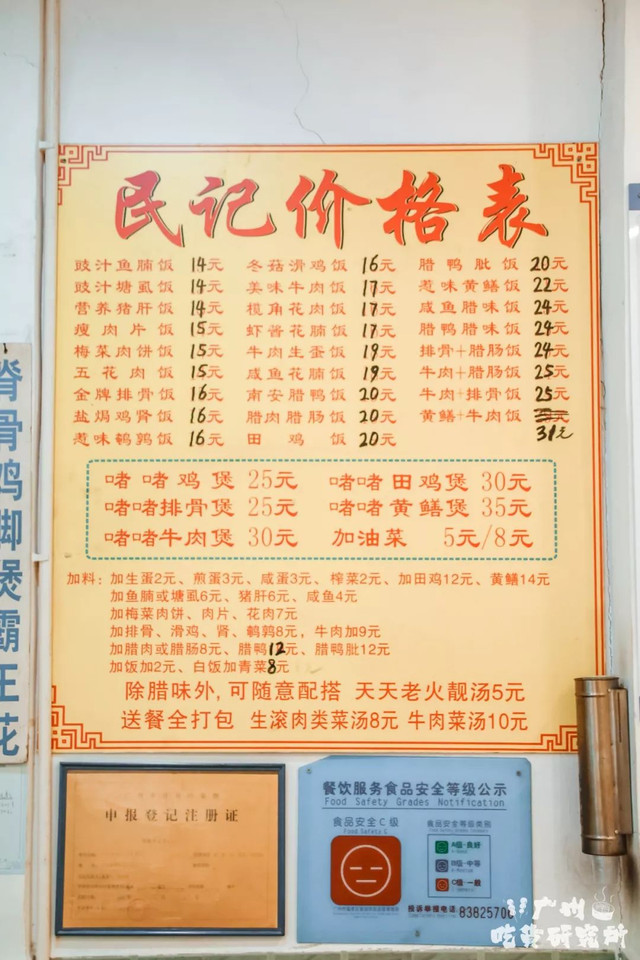 民记价格表
豉汁鱼腩饭 14元 冬菇滑鸡饭 16元 腊鸭肶饭 20元
豉汁塘虱饭 14元 美味牛肉饭 17元 惹味黄鳝饭 22元
营养猪肝饭 14元 榄角花肉饭 17元 咸鱼腊味饭 24元
瘦肉片饭 15元 虾酱花腩饭 17元 腊鸭腊味饭 24元
梅菜肉饼饭 15元 牛肉生蛋饭 19元 排骨+腊肠饭 24元
五花肉饭 15元 咸鱼花腩饭 19元 牛肉+腊肠饭 25元
金牌排骨饭 16元 南安腊鸭饭 20元 牛肉+排骨饭 25元
盐焗鸡肾饭 16元 腊肉腊肠饭 20元 黄鳝+牛肉饭
惹味鹌鹑饭 16元 田鸡饭 20元 31元
啫啫鸡煲 25元 啫啫田鸡煲 30元
啫啫排骨煲 25元 啫啫黄鳝煲 35元
啫啫牛肉煲 30元 加油菜 5元/8元
加料：加生蛋2元、煎蛋3元、咸蛋3元、榨菜2元、加田鸡12元、黄鳝14元
加鱼腩或塘虱6元、猪肝6元、咸鱼4元
加梅菜肉饼、肉片、花肉7元
加排骨、滑鸡、肾、鹌鹑8元，牛肉加9元
加腊肉或腊肠8元、腊鸭12元、腊鸭肶12元
加饭加2元、白饭加青菜8元
除腊味外,可随意配搭 天天老火靓汤5元
送餐全打包 生滚肉类菜汤8元 牛肉菜汤10元
脊骨鸡脚煲霸王花
申报登记注册证
餐饮服务食品安全等级公示
Food Safety Grades Notification
食品安全C级 食品安全等级类别
Food Safety C
A级-良好
B级-中等
C级-一般
投诉举报电话 83825700
广州
吃货研究所